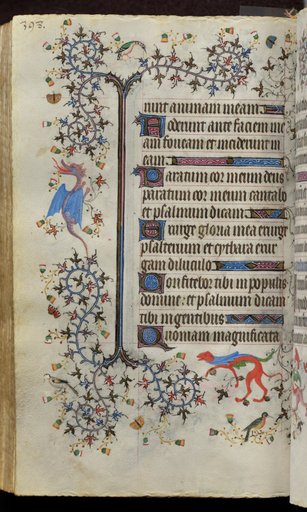 393.
runt animam meam
Foderunt ante faciem me
am foueam et inciderunt in
eam
Paratum cor meum deus
paratum cor meum cantabo
et psalmum dicam
Exurge gloria mea exurge
psalterium et cythara exur
gam diluculo
Confitebor tibi in populis
domine : et psalmum dicam
tibi in gentibus
Quoniam magnificata